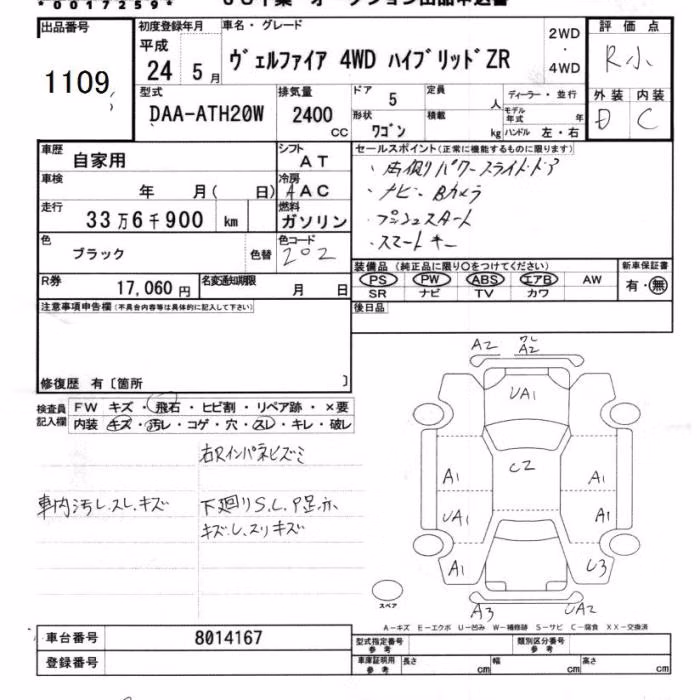 *0017259*
オークション出品申込書
出品番号 初度登録年月 車名・グレード 評価点
1109 平成 24 5月 ヴェルファイア 4WD ハイブリッドZR 2WD・4WD R小
型式 DAA-ATH20W 排気量 2400 CC
ドア 5 定員 人 ディーラー・並行 外装 内装
形状 ワゴン 積載 kg モデル年式 年 C
ハンドル 左・右
車歴 自家用 シフト AT
セールスポイント(正常に機能するものに限ります)
・両側パワースライドドア
・ナビ-Bカメラ
・プッシュスタート
・スマートキー
車検 年 月( 日) 冷房 AAC
走行 33万6千900 km 燃料 ガソリン
色 ブラック 色替 色コード 202
R券 17,060円 名変通知期限 月 日
装備品(純正品に限り○をつけてください) 新車保証書
PS PW ABS エアB AW 有・無
SR ナビ TV カワ
後日品
注意事項申告欄(不具合内容等は具体的に記入して下さい)
修復歴 有〔箇所 〕
検査員記入欄 FW キズ・飛石・ヒビ割・リペア跡・×要
内装 キズ・汚レ・コゲ・穴・スレ・キレ・破レ
右Rインパネヒズミ
車内汚レ.スレ.キズ 下廻りS.C.P足.ホ
キズし.スリキズ
A2 ワレ A2
UA1
C2
A1 A1
UA1 A1
A1 U3
A3 UA2
スペア
A-キズ E-エクボ U-凹み W-補修跡 S-サビ C-腐食 XX-交換済
車台番号 8014167
登録番号
型式指定番号 参考 類別区分番号 参考
車庫証明用 参考 長さ cm 幅 cm 高さ cm